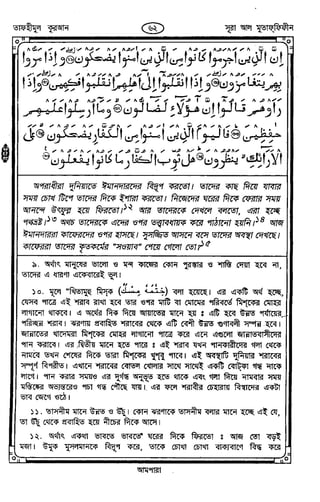 তাফহীমুল কুরআন
৬২
সূরা আল মুতাফ্ফিফীন
إِنَّ الَّذِينَ أَجْرَمُوا كَانُوا مِنَ الَّذِينَ آمَنُوا يَضْحَكُونَ ۝ وَإِذَا مَرُّوا
بِهِمْ يَتَغَامَزُونَ ۝ وَإِذَا انْقَلَبُوا إِلَى أَهْلِهِمُ انْقَلَبُوا فَكِهِينَ ۝ وَإِذَا
رَأَوْهُمْ قَالُوا إِنَّ هَؤُلَاءِ لَضَالُّونَ ۝ وَمَا أُرْسِلُوا عَلَيْهِمْ
حَفِظِينَ ۝ فَالْيَوْمَ الَّذِينَ آمَنُوا مِنَ الْكُفَّارِ يَضْحَكُونَ ۝ عَلَى
الْأَرَائِكِ يَنْظُرُونَ ۝ هَلْ ثُوِّبَ الْكُفَّارُ مَا كَانُوا يَفْعَلُونَ ۝
অপরাধীরা দুনিয়াতে ঈমানদারদের বিদ্রূপ করতো। তাদের কাছ দিয়ে যাবার
সময় চোখ টিপে তাদের দিকে ইশারা করতো। নিজেদের ঘরের দিকে ফেরার সময়
আনন্দে উৎফুল্ল হয়ে ফিরতো।১২ আর তাদেরকে দেখলে বলতো, এরা হচ্ছে
পথভ্রষ্ট।১৩ অথচ তাদেরকে এদের ওপর তত্ত্বাবধায়ক করে পাঠানো হয়নি।১৪ আজ
ঈমানদাররা কাফেরদের ওপর হাসছে। সুসজ্জিত আসনে বসে তাদের অবস্থা দেখছে।
কাফেররা তাদের কৃতকর্মের "সওয়াব" পেয়ে গেলো তো?১৫
৯. অর্থাৎ মানুষের ভালো ও মন্দ কাজের কোন পুরস্কার ও শাস্তি দেয়া হবে না,
তাদের এ ধারণা একেবারেই ভুল।
১০. মূলে "খিতামুহু মিস্ক" (خِتَامُهُ مِسْكٌ) বলা হয়েছে। এর একটি অর্থ হচ্ছে,
যেসব পাত্রে এই শরাব রাখা হবে তার ওপর মাটি বা মোমের পরিবর্তে মিশকের মোহর
লাগানো থাকবে। এ অর্থের দিক দিয়ে আয়াতের মানে হয় : এটি হবে উন্নত পর্যায়ের
পরিচ্ছন্ন শরাব। ঝরণায় প্রবাহিত শরাবের থেকে এটি বেশী উন্নত গুণাবলী সম্পন্ন হবে।
জান্নাতের খাদেমরা মিশকের মোহর লাগানো পাত্রে করে এনে এগুলো জান্নাতবাসীদের
পান করাবে। এর দ্বিতীয় মানে হতে পারে : এই শরাব যখন পানকারীদের গলা থেকে
নামবে তখন শেষের দিকে তারা মিশকের খুশবু পাবে। এই অবস্থাটি দুনিয়ার শরাবের
সম্পূর্ণ বিপরীত। এখানে শরাবের বোতল খোলার সাথে সাথেই একটি বোটকা গন্ধ নাকে
লাগে। পান করার সময়ও এর দুর্গন্ধ অনুভূত হতে থাকে এবং গলা দিয়ে নামবার সময়
মস্তিষ্কের অভ্যন্তরেও পচা গন্ধ পৌঁছে যায়। এর ফলে শরাবীর চেহারায় বিস্বাদের একটা
ভাব জেগে ওঠে।
১১. তাসনীম মানে উন্নত ও উঁচু। কোন ঝরণাকে তাসনীম বলার মানে হচ্ছে এই যে,
তা উঁচু থেকে প্রবাহিত হয়ে নীচের দিকে আসে।
১২. অর্থাৎ একথা ভাবতে ভাবতে ঘরের দিকে ফিরতো : আজ তো বড়ই
মজা। উমুক মুসলমানকে বিদ্রূপ করে, তাকে চোখা চোখা বাক্যবাণে বিদ্ধ করে
আমপারা